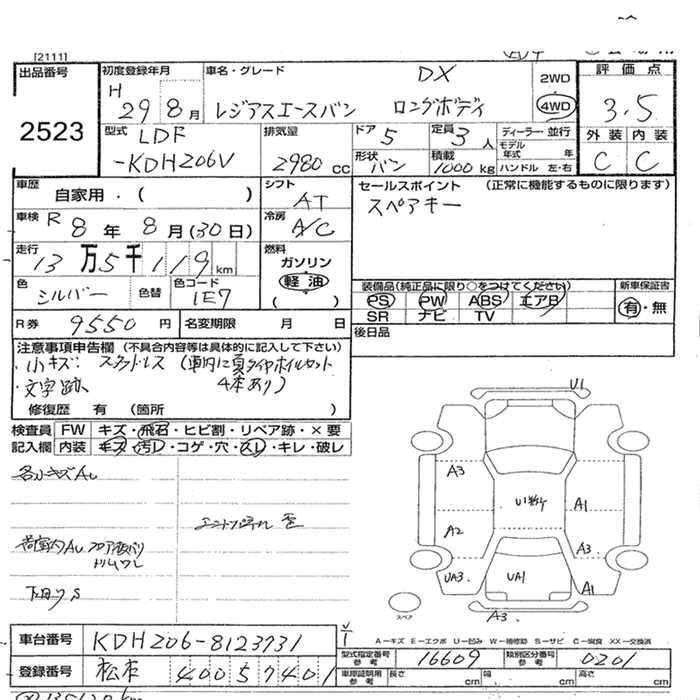 [2111]
出品番号
2523
初度登録年月
H
29 8月
車名・グレード
DX
レジアスエースバン ロングボディ
2WD
4WD
評価点
3.5
外装 内装
C C
型式
LDF
-KDH206V
排気量
2980 cc
ドア 5
形状 バン
定員 3人
積載 1000 kg
ディーラー・並行
モデル年式 年
ハンドル 左・右
車歴
自家用・( )
シフト
AT
車検 R 8年 8月(30日)
冷房
A/C
走行
13万5千119km
燃料
ガソリン
軽油
( )
色
シルバー
色替
色コード
1E7
R券 9550円
名変期限 月 日
セールスポイント (正常に機能するものに限ります)
スペアキー
装備品(純正品に限り○をつけてください)
PS PW ABS エアB
SR ナビ TV
新車保証書
有・無
後日品
注意事項申告欄 (不具合内容等は具体的に記入して下さい)
小キズ・スタッドレス (車内に夏タイヤホイルセット
・文字跡 4本あり)
修復歴 有 (箇所 )
検査員 FW キズ・飛石・ヒビ割・リペア跡・×要
記入欄 内装 キズ・汚レ・コゲ・穴・スレ・キレ・破レ
各小キズAU
下廻りS
U1
A3
A1
A2
A3
UA3
UA1
A1
A3
スペア
A-キズ E-エクボ U-凹み W-補修跡 S-サビ C-腐食 XX-交換済
車台番号 KDH206-8123731
型式指定番号 参考 16609
類別区分番号 参考 0201
登録番号 松本 400 57401
車庫証明用 参考 長さ cm 幅 cm 高さ cm